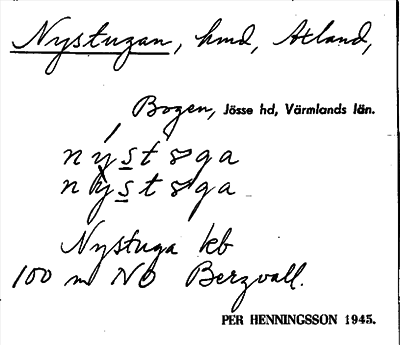 Nystugan, hmd, Åtland,
Bogen, Jösse hd, Värmlands län.
Nystuga kb
100 m NO Bergvall.
PER HENNINGSSON 1945.